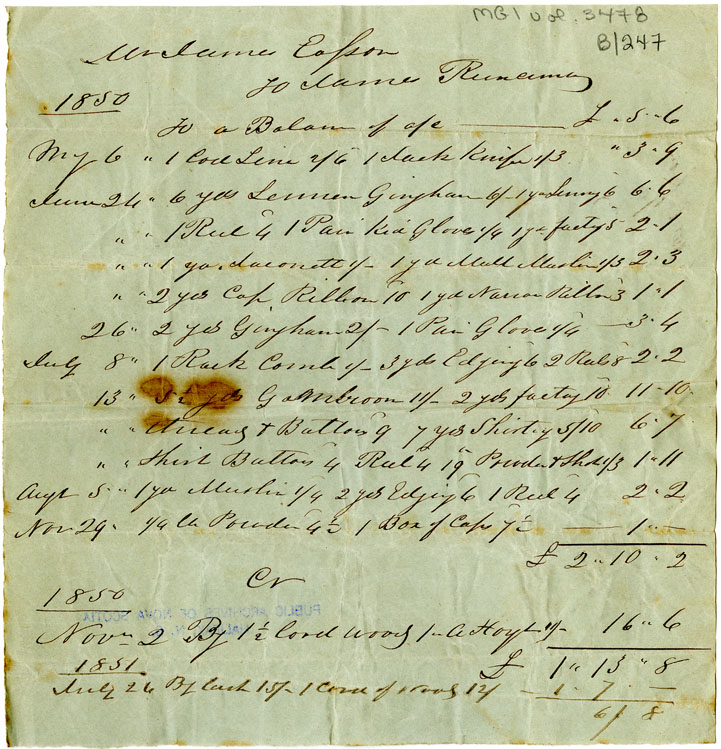 MG1 vol. 3478
B/247
Mr James Easson
To James Runciman
1850
To a Balance of a/c £ " 5 " 6
My 6 " 1 Cod Line 2/6 1 Jack Knife 1/3 " 3 " 9
June 24 " 6 yds Lennen Gingham 6/- 1 yd 6 6 " 6
" " 1 Reel 4 1 Pair Kid Gloves 1/4 1 yd factory 5 2 " 1
" " 1 yd Jaconett 1/- 1 yd Mull Muslin 1/3 2 " 3
" " 2 yds Cap Ribbon 10 1 yd Narrow Ribbon 3 1 " 1
26 " 2 yds Gingham 2/- 1 Pair Gloves 1/4 3 " 4
July 8 " 1 Rack Comb 1/- 3 yds Edging 6 2 Reels 8 2 " 2
13 " yds Gambroon 11/- 2 yds factory 10 11 " 10
" " thread & Buttons 9 7 yds Shirting 5/10 6 " 7
" " Shirt Buttons 4 Reel 4 Powder & Shot 1/3 1 " 11
Augt 5 " 1 yd Muslin 1/4 2 yds Edging 6 1 Reel 4 2 " 2
Nov 29 " 1/4 lb Powder 4½ 1 Box of Caps 7½ 1 " —
£ 2 " 10 " 2
Cr
1850
PUBLIC ARCHIVES OF NOVA SCOTIA
Novr 2 By 1½ Cord wood A Hoyt 11/- 16 " 6
£ 1 " 13 " 8
1851
July 26 By Cash 15/- 1 Cord of wood 12/ 1 . 7 . —
6/ 8